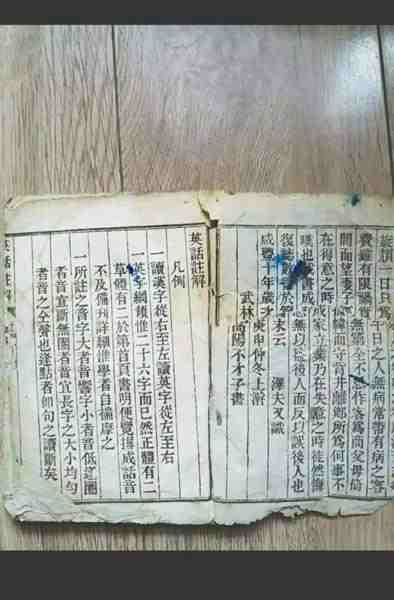 一日只為千日之人無病常帶有病之客
費雖有限 作客為商父母倚
閭而望妻子 幃而守背井離鄉所為何事不
在得意之時成家立業乃在失意之時徒然悔
嘆也 書成 無以 後人而反以誤後人也
復 於 末云 澤夫又識
咸豐十年歲次庚申仲冬上澣
武林高陽不才子書
英話註解
凡例
一讀漢字從右至左讀英字從左至右
一英字綱領惟二十六字而已然正體有二
草體有二於第首頁書明便覽揆成話音
不及備刊詳細惟學者自備摩之
一所註之音字大者音響字小者音低逢圈
者音宜斷無圈者音宜長字之大小均勻
者音之仝聲也逢點者即句之讀斷矣
英話註解